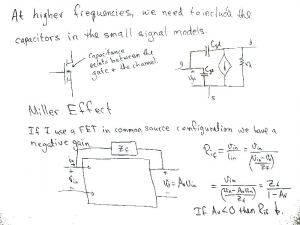 At higher frequencies, we need to include the
capacitors in the small signal models.
Capacitance
exists between the
gate & the channel.
Cgd
d
g
Cgs
s
Miller Effect
If I use a FET in common source configuration we have a
negative gain
Zf
Vo = AvVin
Rif = Vin / Iin = Vin / ((Vin - Vo) / Zf)
= Vin / ((Vin - AvVin) / Zf) = Zf / (1 - Av)
If Av<0 then Rif